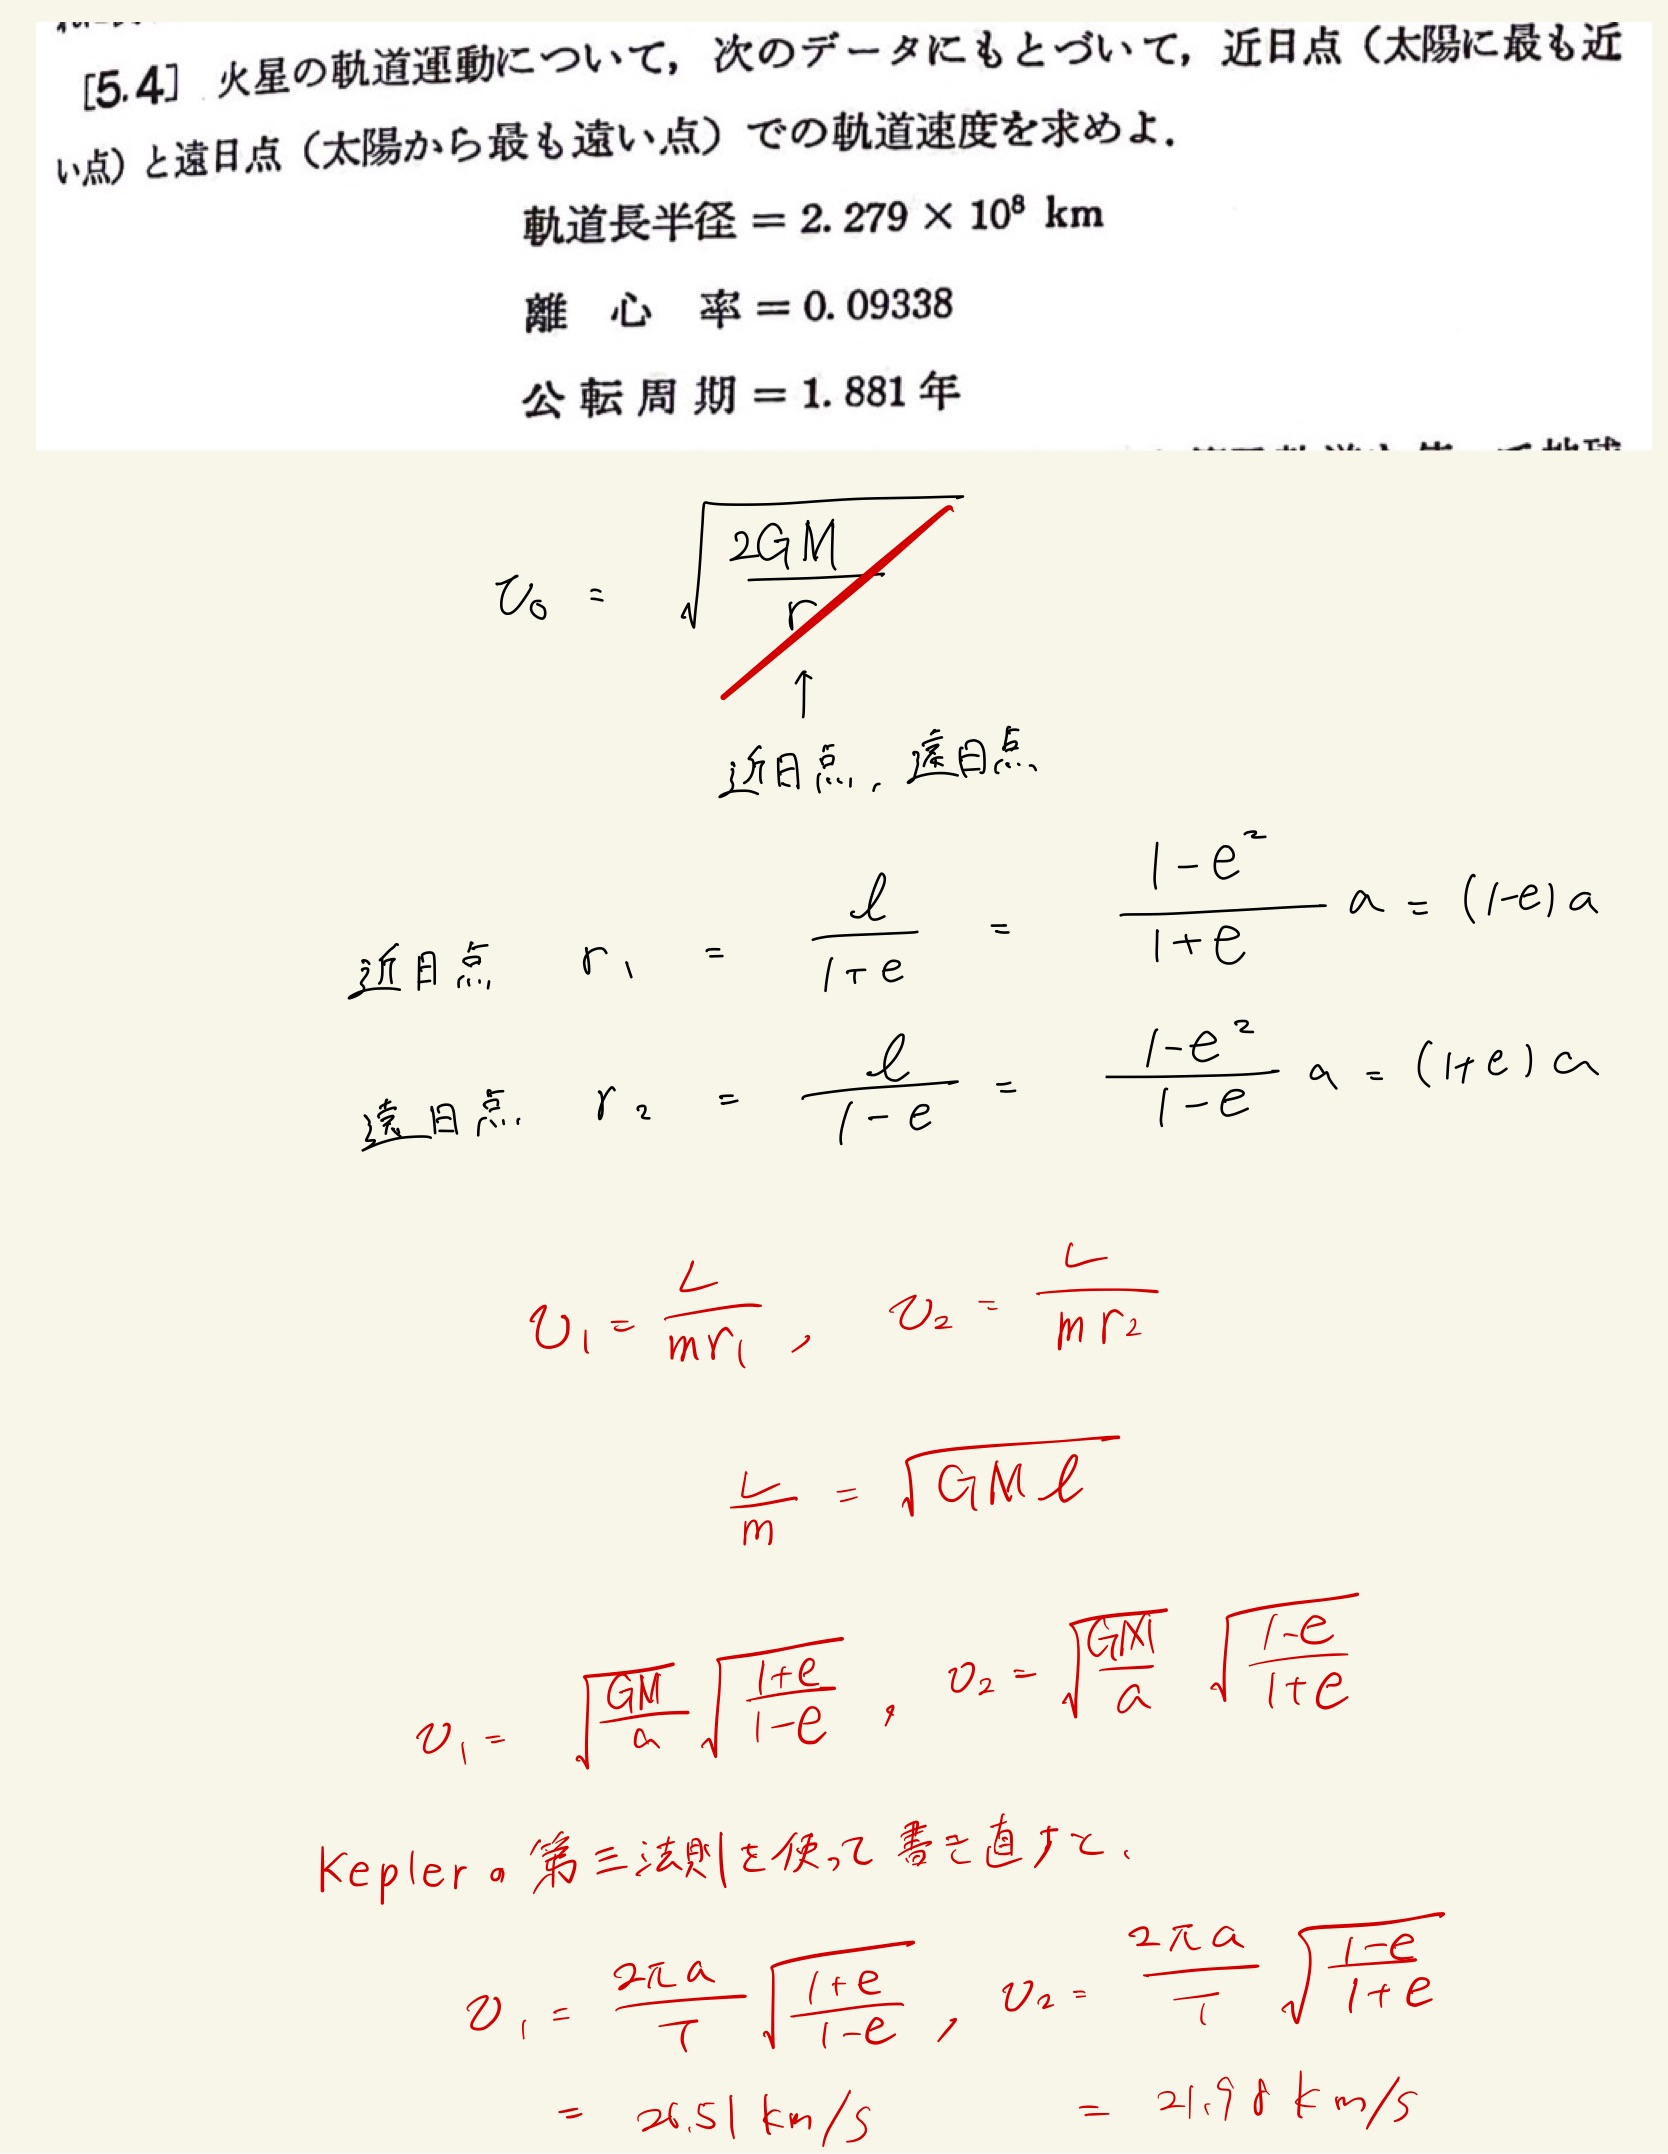 [5.4] 火星の軌道運動について，次のデータにもとづいて，近日点（太陽に最も近
い点）と遠日点（太陽から最も遠い点）での軌道速度を求めよ．
軌道長半径 = 2.279 × 10⁸ km
離心率 = 0.09338
公転周期 = 1.881 年
v₀ = √(2GM/r)
↑
近日点、遠日点
近日点 r₁ = l/(1+e) = (1-e²)/(1+e) a = (1-e)a
遠日点 r₂ = l/(1-e) = (1-e²)/(1-e) a = (1+e)a
v₁ = L/(mr₁), v₂ = L/(mr₂)
L/m = √(GMl)
v₁ = √(GM/a) √((1+e)/(1-e)), v₂ = √(GM/a) √((1-e)/(1+e))
Keplerの第三法則を使って書き直すと、
v₁ = 2πa/T √((1+e)/(1-e)), v₂ = 2πa/T √((1-e)/(1+e))
= 26.51 km/s = 21.98 km/s